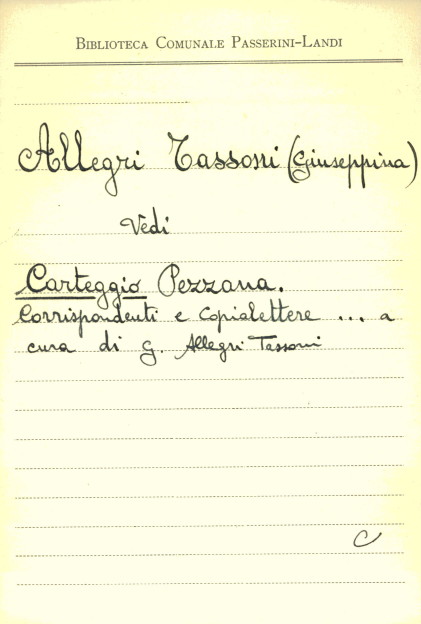 BIBLIOTECA COMUNALE PASSERINI-LANDI
Allegri Tassoni (Giuseppina)
Vedi
Carteggio Pezzana.
Corrispondenti e Copialettere ... a
cura di G. Allegri Tassoni
C